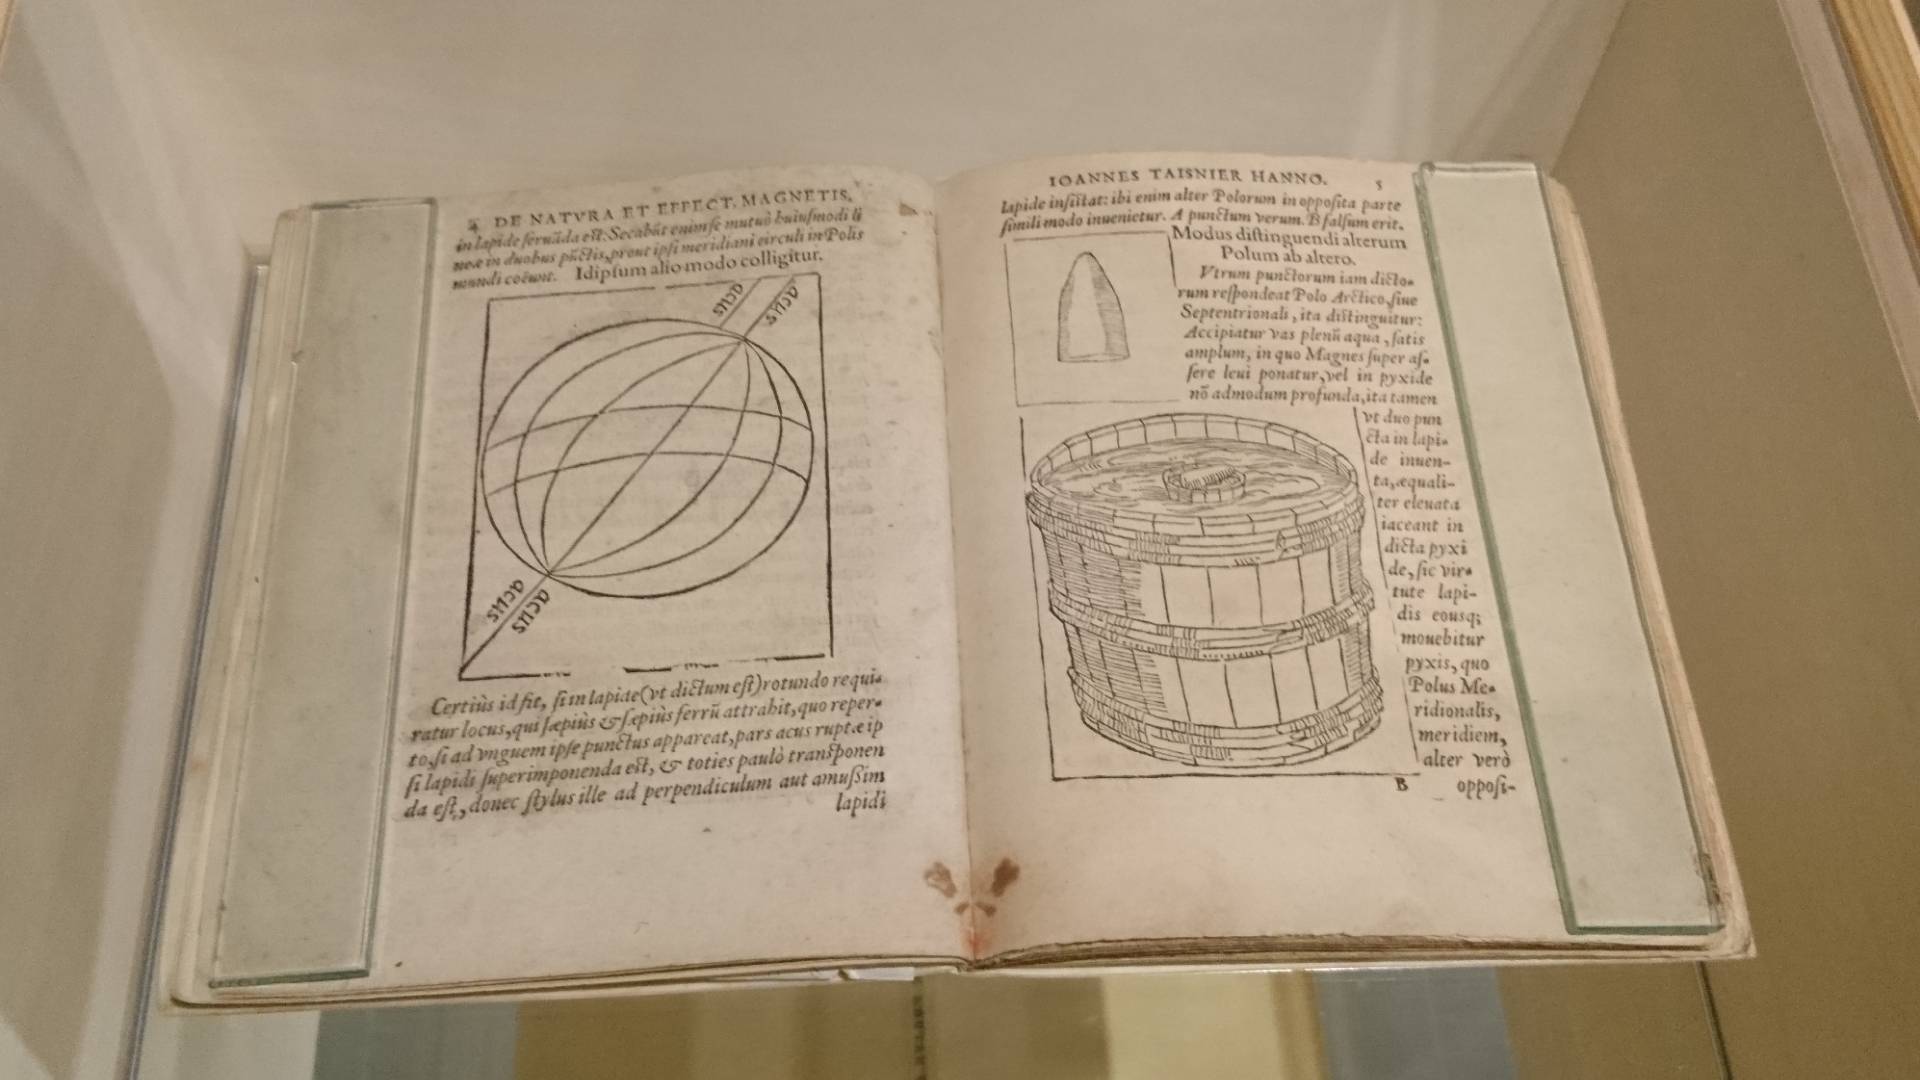 4 DE NATVRA ET EFFECT. MAGNETIS,
in lapide seruāda est. Secabūt enim se mutuò huiusmodi li
neæ in duobus pūctis, prout ipsi meridiani circuli in Polis
mundi coëunt. Idipsum alio modo colligitur.
acus
acus
acus
acus
Certiùs id fit, si in lapide (vt dictum est) rotundo requi-
ratur locus, qui sæpiùs & sæpiùs ferrū attrahit, quo reper-
to, si ad vnguem ipse punctus appareat, pars acus ruptæ ip
si lapidi superimponenda est, & toties paulò transponen
da est, donec stylus ille ad perpendiculum aut amussim
lapidi
IOANNES TAISNIER HANNO. 5
lapide insistat: ibi enim alter Polorum in opposita parte
simili modo inuenietur. A punctum verum. B falsum erit.
Modus distinguendi alterum
Polum ab altero.
Vtrum punctorum iam dicto-
rum respondeat Polo Arctico, siue
Septentrionali, ita distinguitur:
Accipiatur vas plenū aqua, satis
amplum, in quo Magnes super as-
sere leui ponatur, vel in pyxide
nō admodum profunda, ita tamen
vt duo pun
cta in lapi-
de inuen-
ta, æquali-
ter eleuata
iaceant in
dicta pyxi
de, sic vir-
tute lapi-
dis eousq;
mouebitur
pyxis, quo
Polus Me-
ridionalis,
meridiem,
alter verò
B opposi-